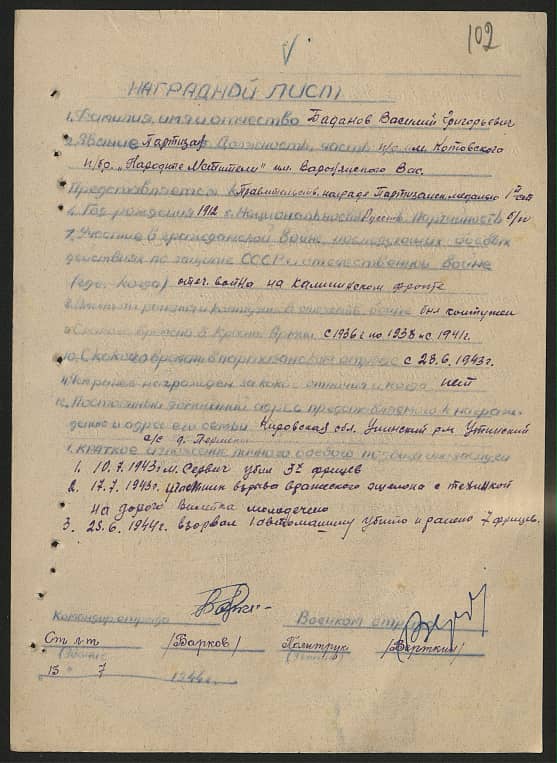 102
НАГРАДНОЙ ЛИСТ
1. Фамилия, имя и отчество Баданов Василий Григорьевич
2. Звание Партизан Должность, часть п/о им. Котовского
п/бр. „Народные Мстители" им. Воронянского Вас.
Представляется к Правительств. награде Партизанск. медалью 1й ст.
4. Год рождения 1912 г. Национальность Русск. Партийность б/п
7. Участие в гражданской войне, последующих боевых
действиях по защите СССР и отечественной войне
(где, когда) отеч. война на калининском фронте
ранения и контузии в отечеств. войне был контужен
С какого времени в Красной Армии с 1936 г по 1938 и с 1941 г.
10. С какого времени в партизанском отряде с 23.6.1943 г.
11. Чем ранее награжден за какие отличия и когда нет
12. Постоянный домашний адрес представляемого к награж-
дению и адрес его семьи Кировская обл. Унинский р-н
с/с д.
1. Краткое изложение личного боевого подвига или заслуги
1. 10.7.1943 г. м. Сервич убил 3х фрицев
2. 17.7.1943 г. участник взрыва вражеского эшелона с техникой
на дороге Вилейка молодечно
3. 25.6.1944 г. взорвал 1 автомашину убито и ранено 7 фрицев.
Командир отряда Военком отр.
Ст л-т /Барков/ Политрук /Верткин/
(Звание) (Звание)
13 " 7 1944 г.